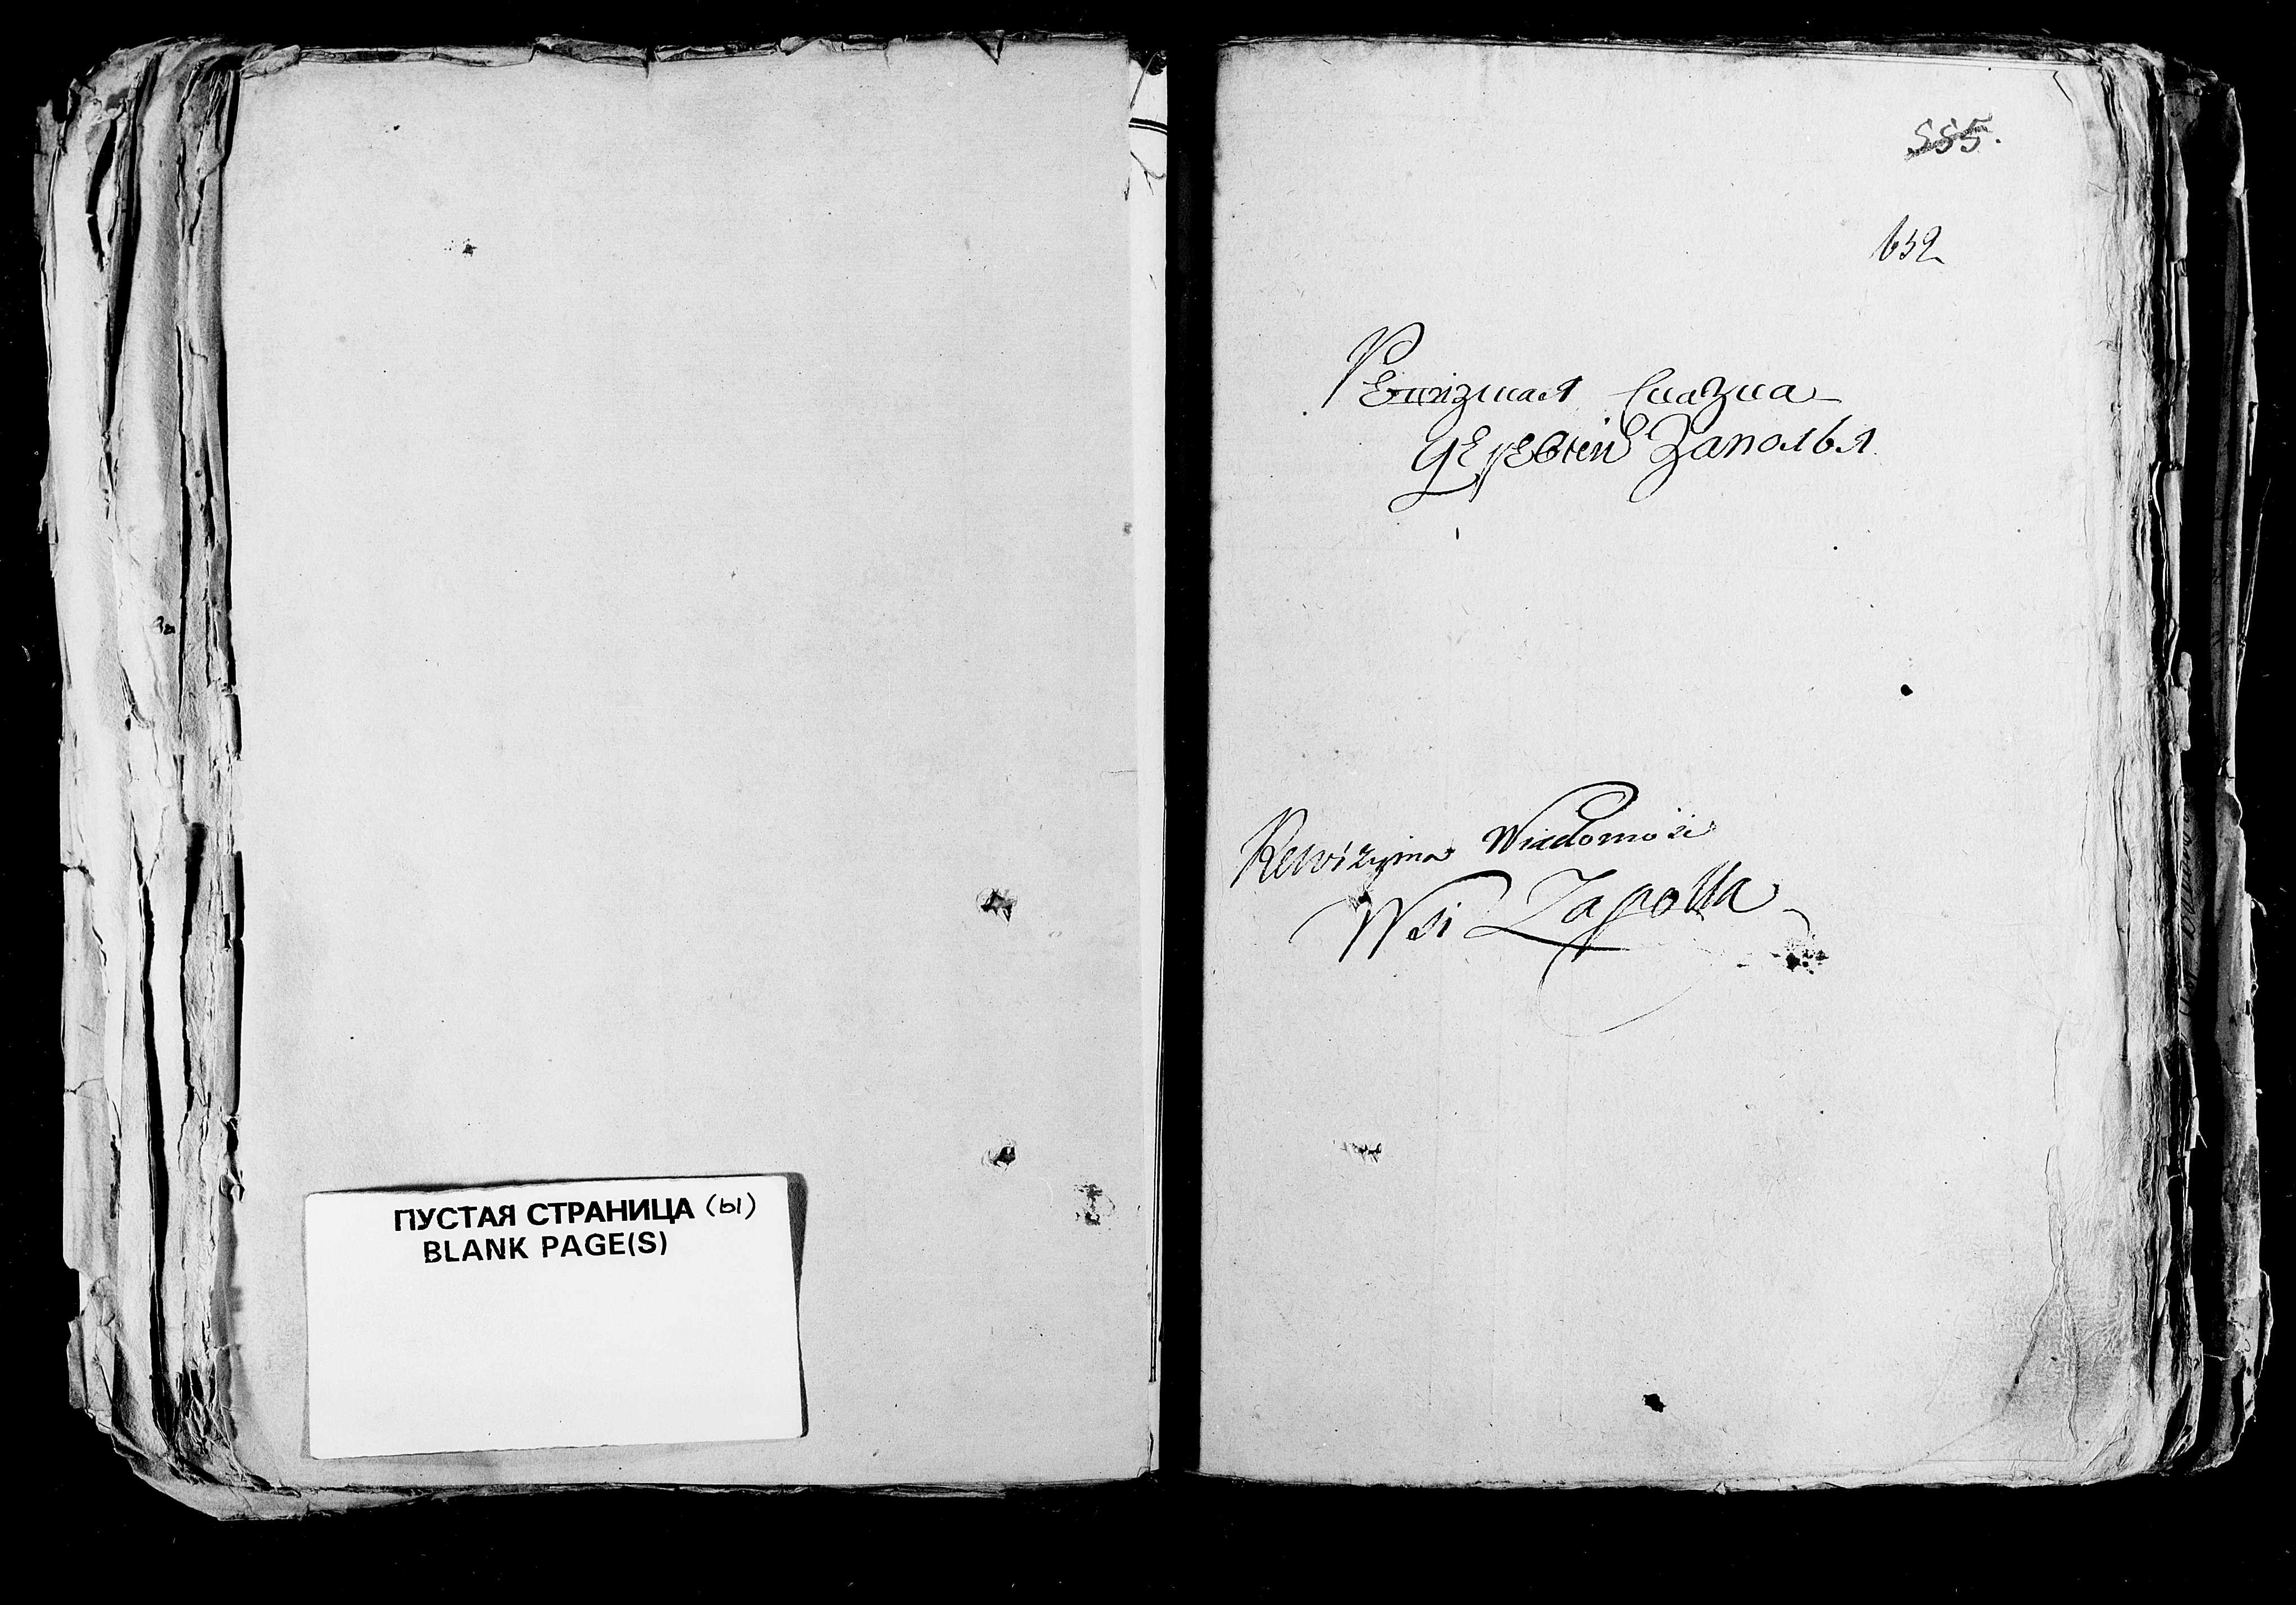 ПУСТАЯ СТРАНИЦА (ы)
BLANK PAGE(S)
555.
632
Ревизная Сказка
деревни Заполья
Rewizyina Wiadomość
Wsi Zapolla